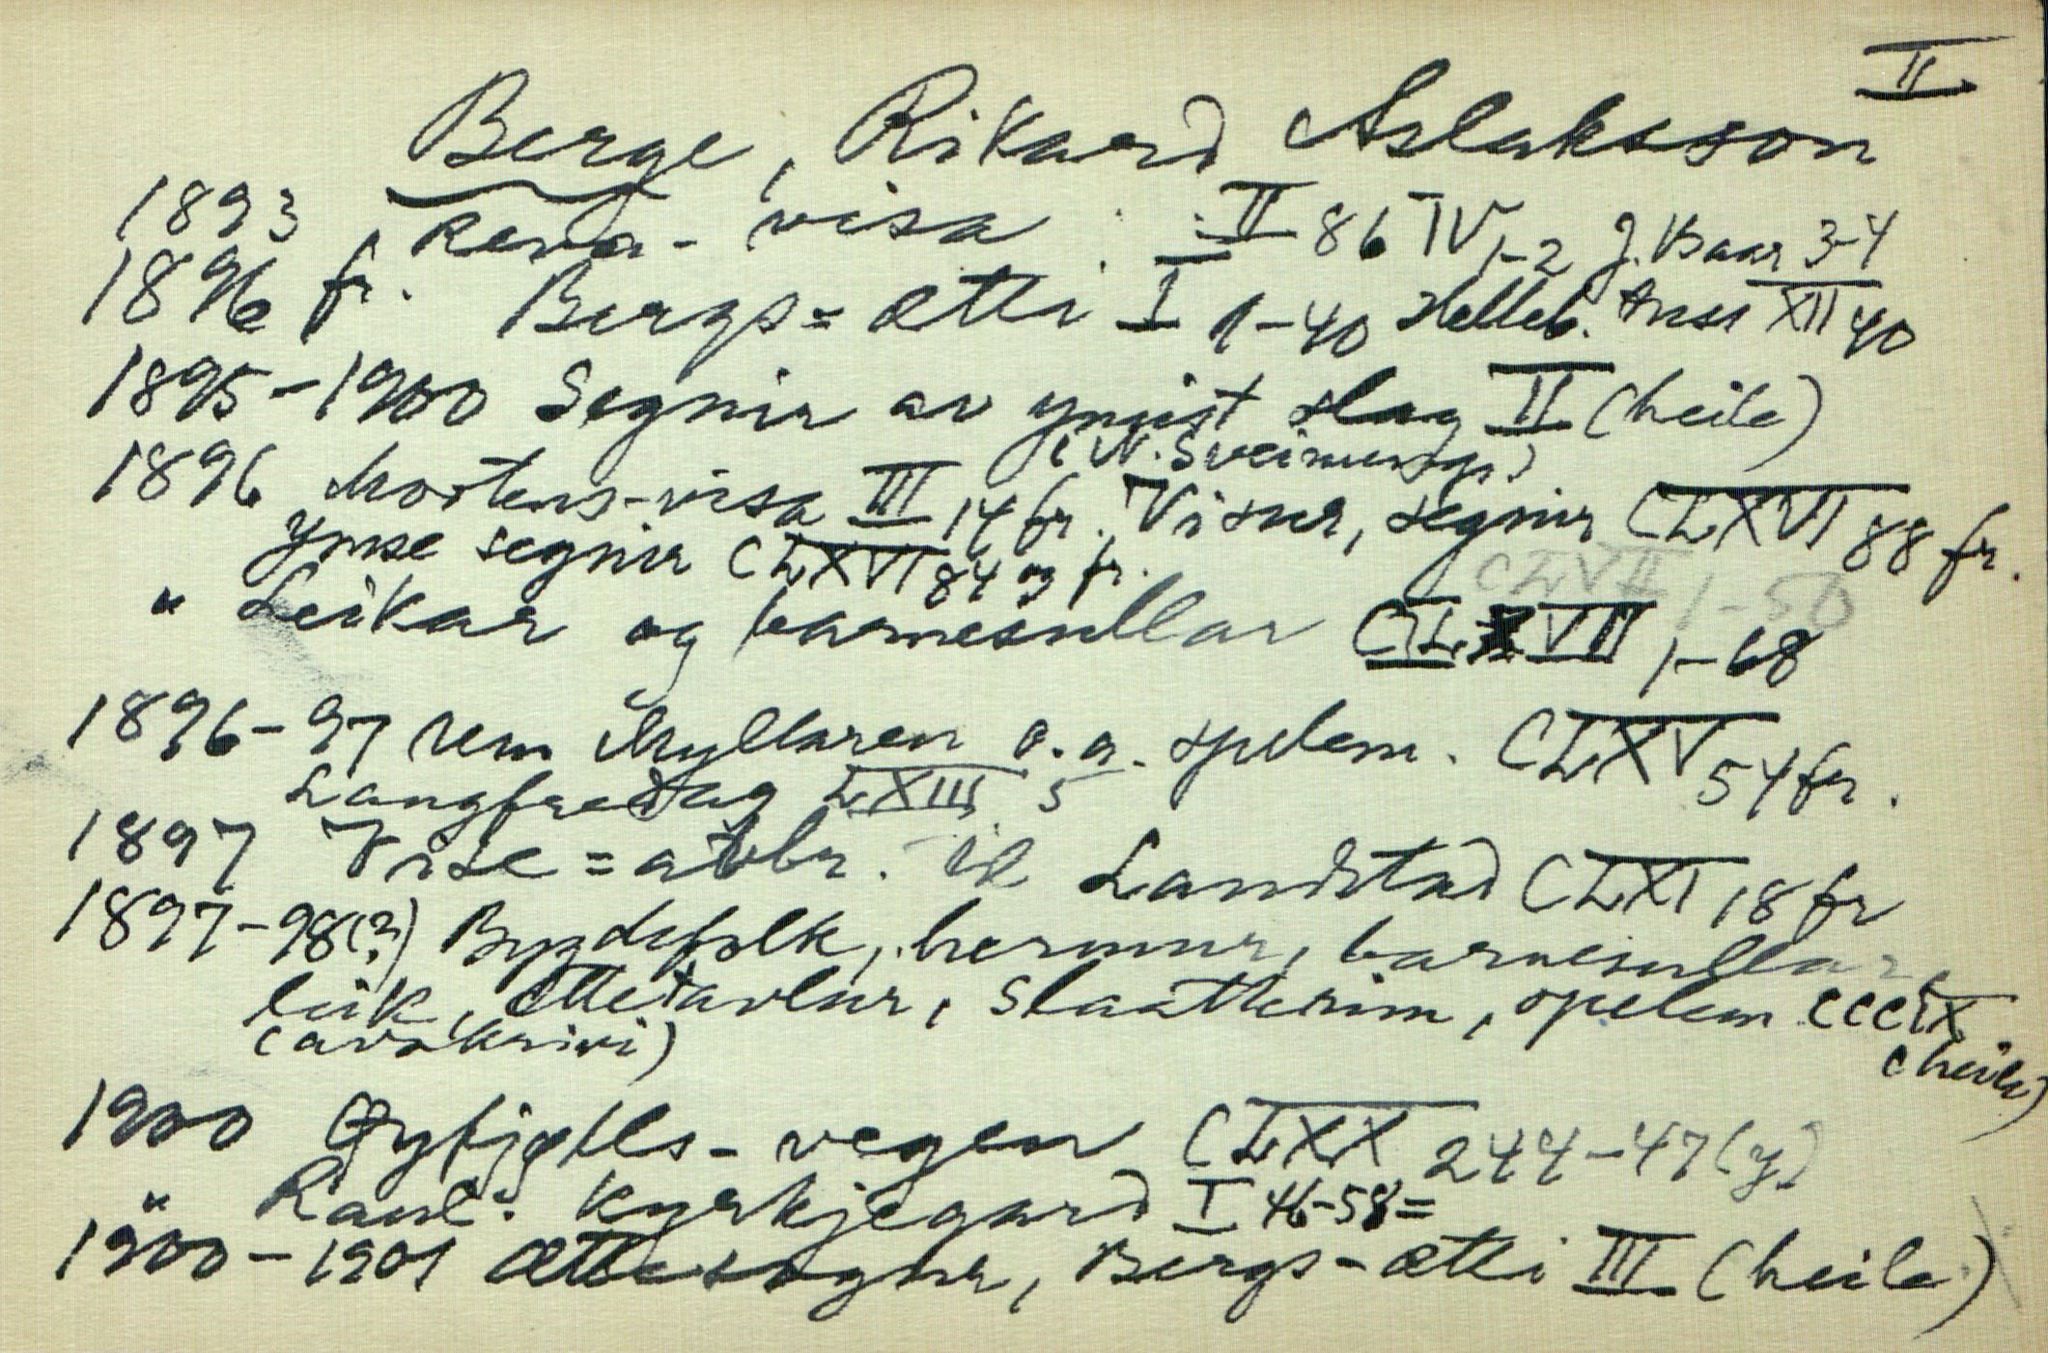 II
Berge, Rikard Aslaksson
1893 Reva-visa. II 86 IV 1-2 J. Baar 3-4
1896 fr. Bergs=ætti I 1-40 Helleb. Anst XII 40
1895-1900 Segnir av ymist slag II (heile)
(N. Sveinungs)
1896 Mortens-visa III 14 fr. Visur, segnir CLXVI 88 fr.
Ymse segnir CLXVI 84 og fr.
CLVII 1-50
" Leikar og barnesullar CLVII 1-68
1896-97 Um Myllaren o.a. spelem. CLXV 54 fr.
Langfredag LXIII 5
1897 Vise=avbr. til Landstad CLXI 18 fr
1897-98(?) Bygdefolk, hermur, barnesullar,
leik, ættetavlur, slaatterim, spelem CCCIX
(avskrivi) (heile)
1900 Gyfjølls-vegen CLXX 244-47 (y)
" Raul: kyrkjegard I 46-58=
1900-1901 Ættesogur, Bergs-ætti III (heile)